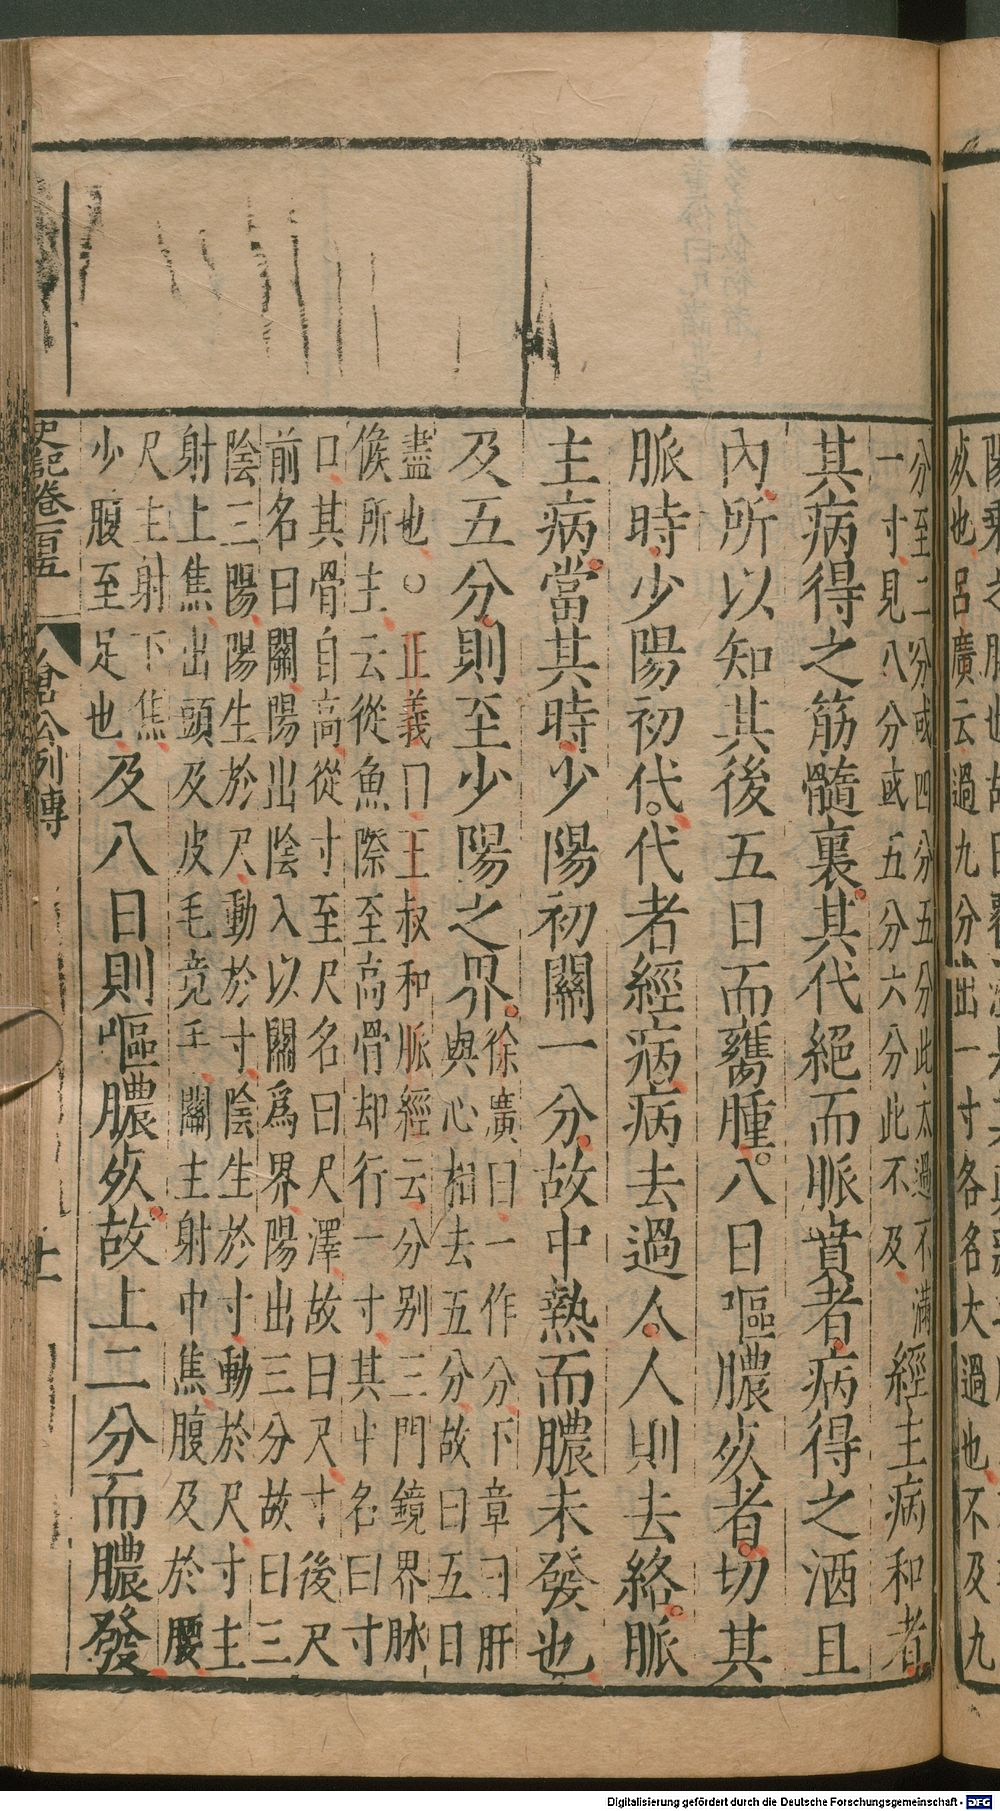 分至二分或四分五分此太過不滿
一寸見八分或五分六分此不及
經主病和者
其病得之筋髓裏其代絕而脈賁者病得之酒且
內所以知其後五日而臃腫八日嘔膿死者切其
脈時少陽初代代者經病病去過人人則去絡脈
主病當其時少陽初關一分故中熱而膿未發也
及五分則至少陽之界
徐廣曰一作分下章曰肝
與心相去五分故曰五日
盡也○正義曰王叔和脈經云分别三門鏡界脉
候所主云從魚際至高骨却行一寸其中名曰寸
口其骨自高從寸至尺名曰尺澤故曰尺寸後尺
前名曰關陽出陰入以關為界陽出三分故曰三
陰三陽陽生於尺動於寸陰生於寸動於尺寸主
射上焦出頭及皮毛竟手關主射中焦腹及於腰
尺主射下焦
少腹至足也
及八日則嘔膿死故上二分而膿發
史記卷一百五
倉公列傳
十一
過九分出一寸各名大過也不及九
死也呂廣云
Digitalisierung gefördert durch die Deutsche Forschungsgemeinschaft - DFG